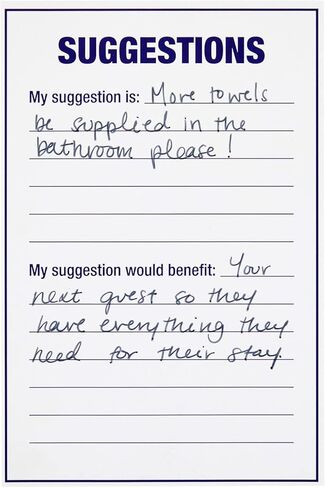 SUGGESTIONS
My suggestion is: More towels
be supplied in the
bathroom please!
My suggestion would benefit: Your
next guest so they
have everything they
need for their stay.